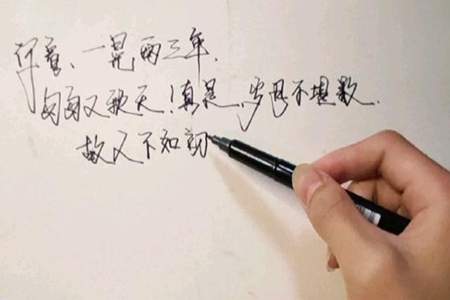 你看、一晃两三年，
匆匆又秋天！真是，岁月不堪数．
故人不如初